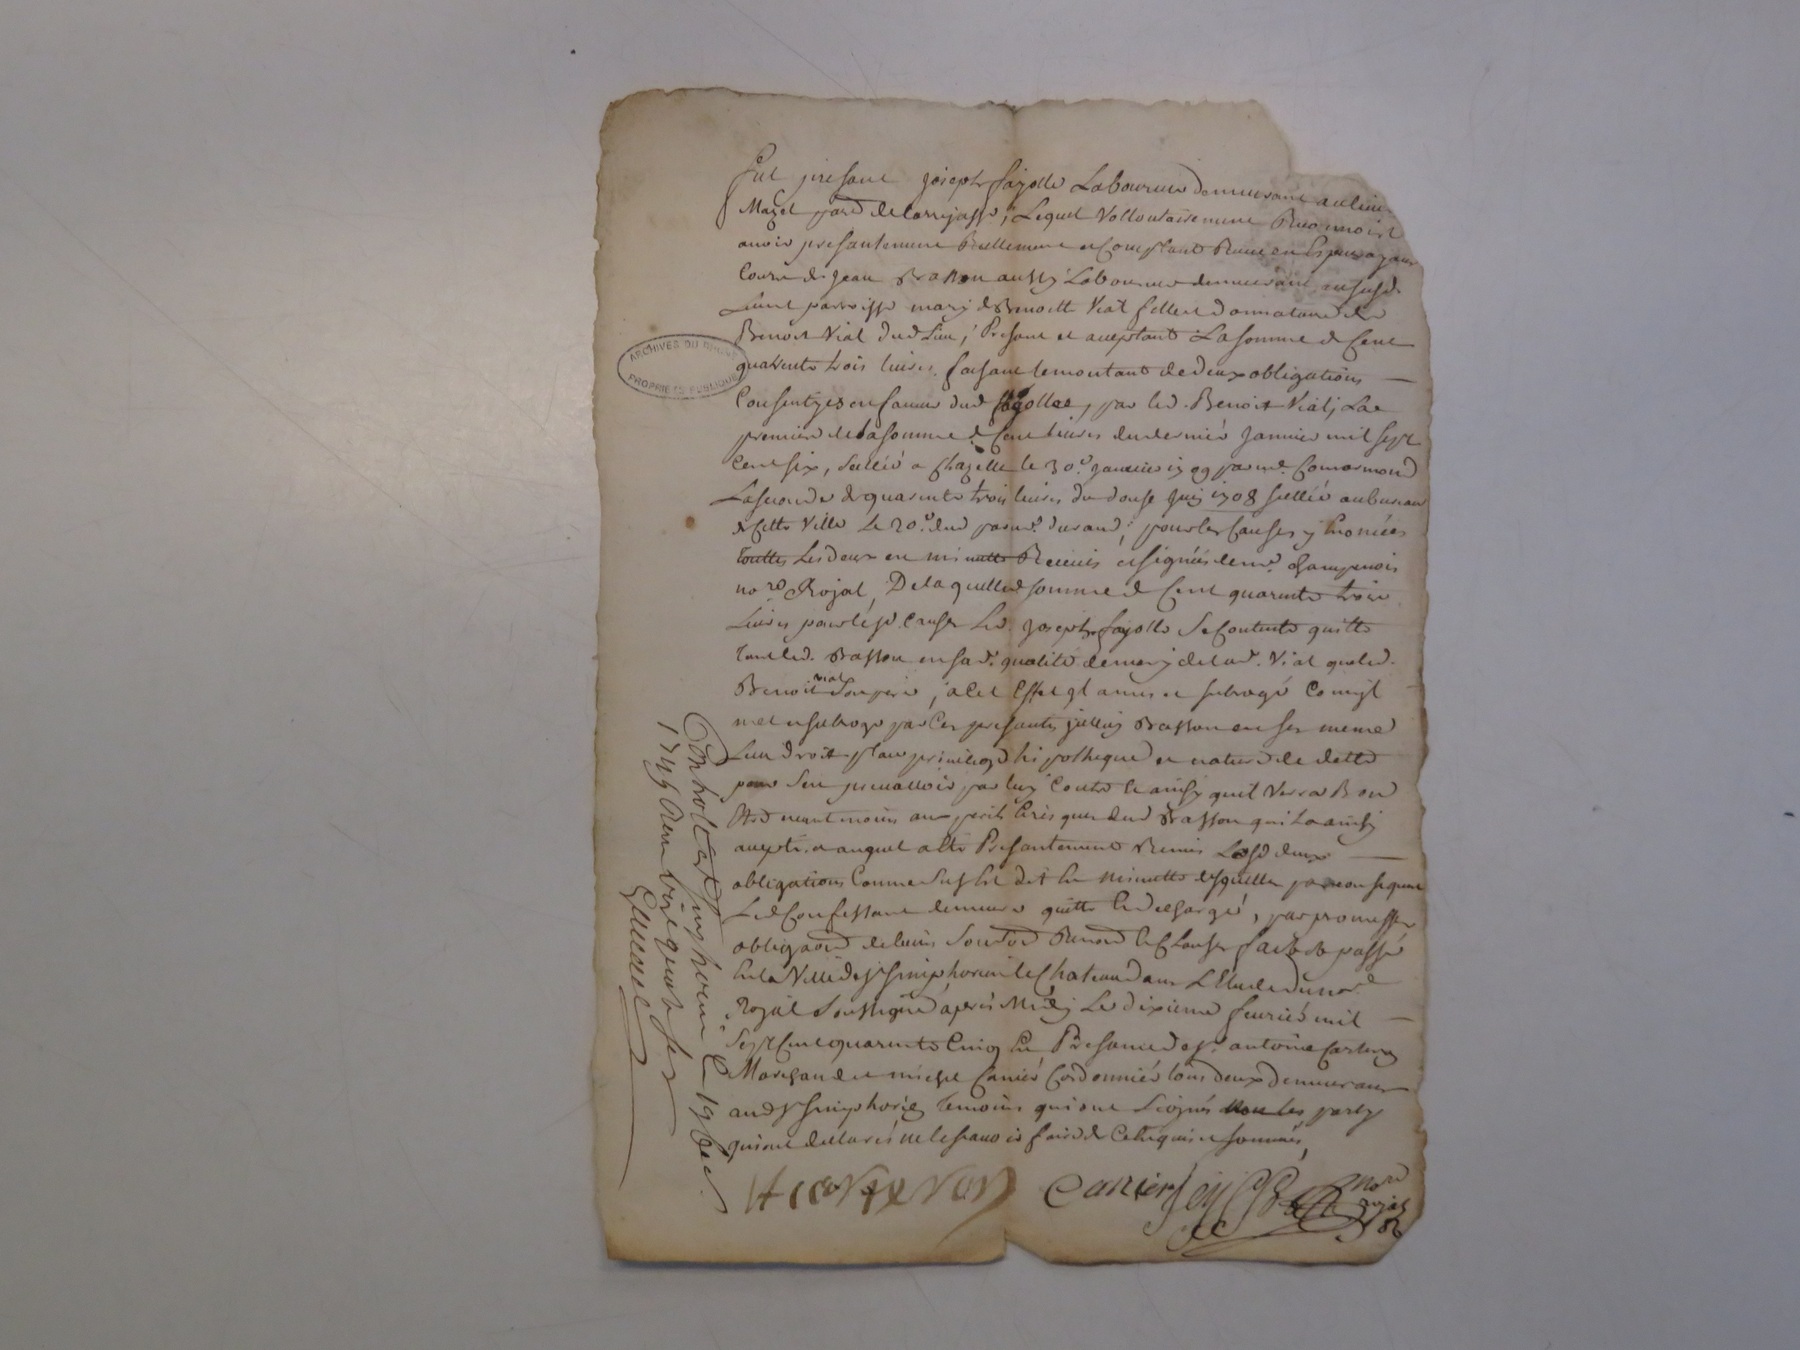 fut presant Joseph fayolle Laboureur demeurant au lieu
Mazel parr^d de Larrajasse, Lequel Vollontairement Reconnoist
avoir presantement Reellement et Comptant Receu en Espece ayant
Cours de Jean Brasson aussy Laboureur demeurant
parroisse mary de Benoitte Vial fille et donnataire de
Benoit Vial dud Lieu, Presant et aceptant La somme de Cent
quarente trois livres faisant le montant de deux obligations
Consentyes en faveur dud fayolle, par led. Benoit Vial, La
premiere de la somme de Cent livres du dernier Janvier mil sept
Cent six, scellée a Chazelle le 30^e Janvier par m^e
La seconde de quarente trois livres du douse Juin 1708 scellée au bureau
de cette Ville le 20^e dud par m^e durand, pour les Causes y Enoncées
touttes Les deux en minutte Receues et signées de m^e
no^re Royal, De laquelle somme de Cent quarente trois
Livres pour les Causes Led. Joseph fayolle se Contente quitte
tant led. Brasson en sad. qualité de mary de lad. Vial que led.
Benoit vial Son pere, a Cet Effet mis et subrogé Comme il
met et subroge par Ces presantes, led Brasson en ses meme
Lieu droit place privilege hipotheque et nature de dette
pour s'en prevalloir par luy Contre ainsy quil Verra Bon
neantmoins aux perils et risques dud Brasson qui La ainsy
acepté et auquel a Eté Presantement Remis Lesd deux
obligations Comme dit En minutte desquelles par consequent
Led Confessant demeure quitte et dechargé, par promesses
obligaõns de biens Renond et Clauses fait et passé
En la Ville de S^t Simphorien le Chateau dans L'Etude du no^re
Royal Soussigné apres Midy Le dixieme fevrier mil
Sept Cent quarente Cinq En Presance de s^r antoine
Marchand et michel Canier Cordonnier tous deux demeurant
aud S^t Simphorien temoins qui ont Signés non les partys
qui ont declarés ne le savoir faire de Ce Enquis et sommés,
Canier
no^re
royal
Controlé a S^t Simphorien Le 19 fev.
1745 Receu vingt quatre sols
ARCHIVES DU RHÔNE
PROPRIETE PUBLIQUE